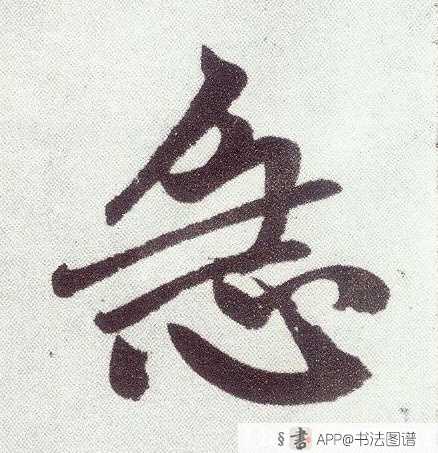 急
§書 APP@书法图谱